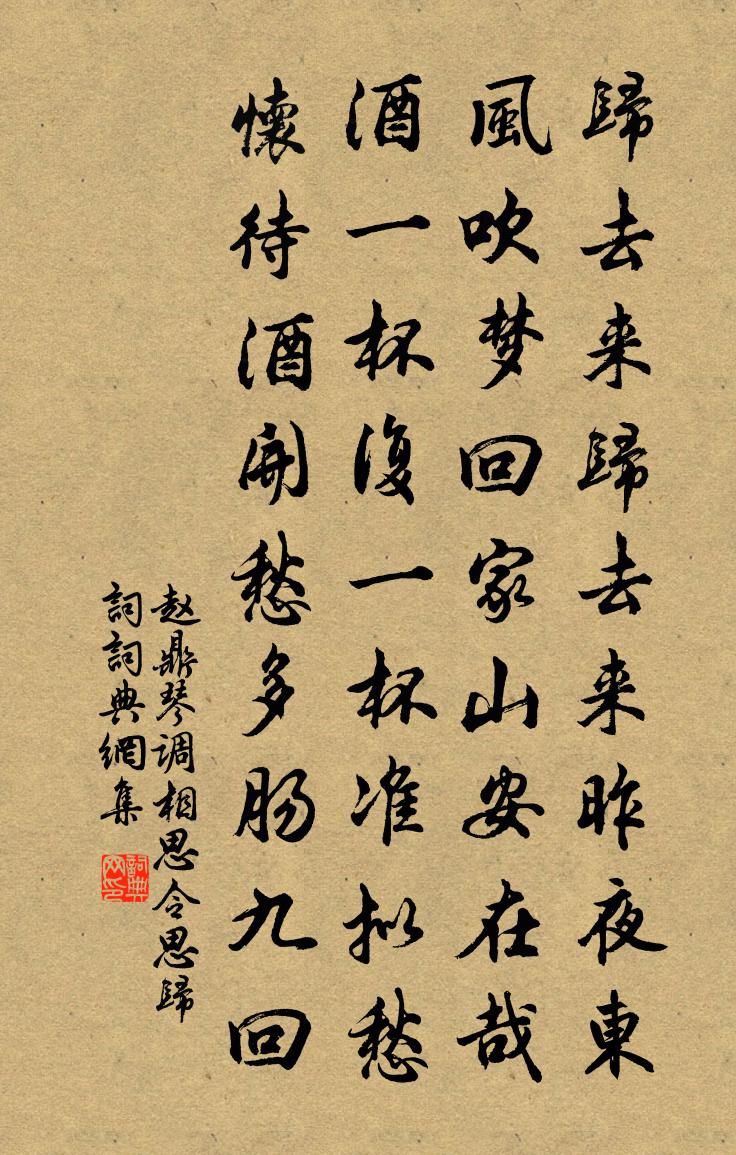 歸去来歸去来昨夜東
風吹梦回家山安在哉
酒一杯復一杯准拟愁
懷待酒開愁多肠九回
赵鼎琴调相思令思歸
詞詞典網集
詞典网印